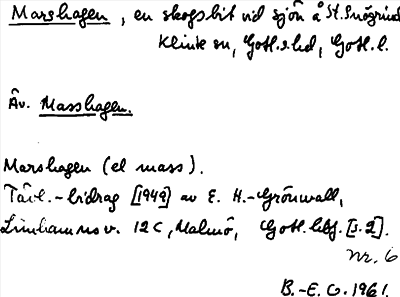 Marshagen, en skogsbit vid sjön å St. Snögrinde
Klinte sn, Gotl. s. hd, Gotl. l.
Äv. Masshagen.
Marshagen (el mass).
Tävl.-bidrag [1949] av E. H.-Grönwall,
Limhamnsv. 12C, Malmö, Gotl. [s. 2].
nr. 6
B.-E. O. 1961.